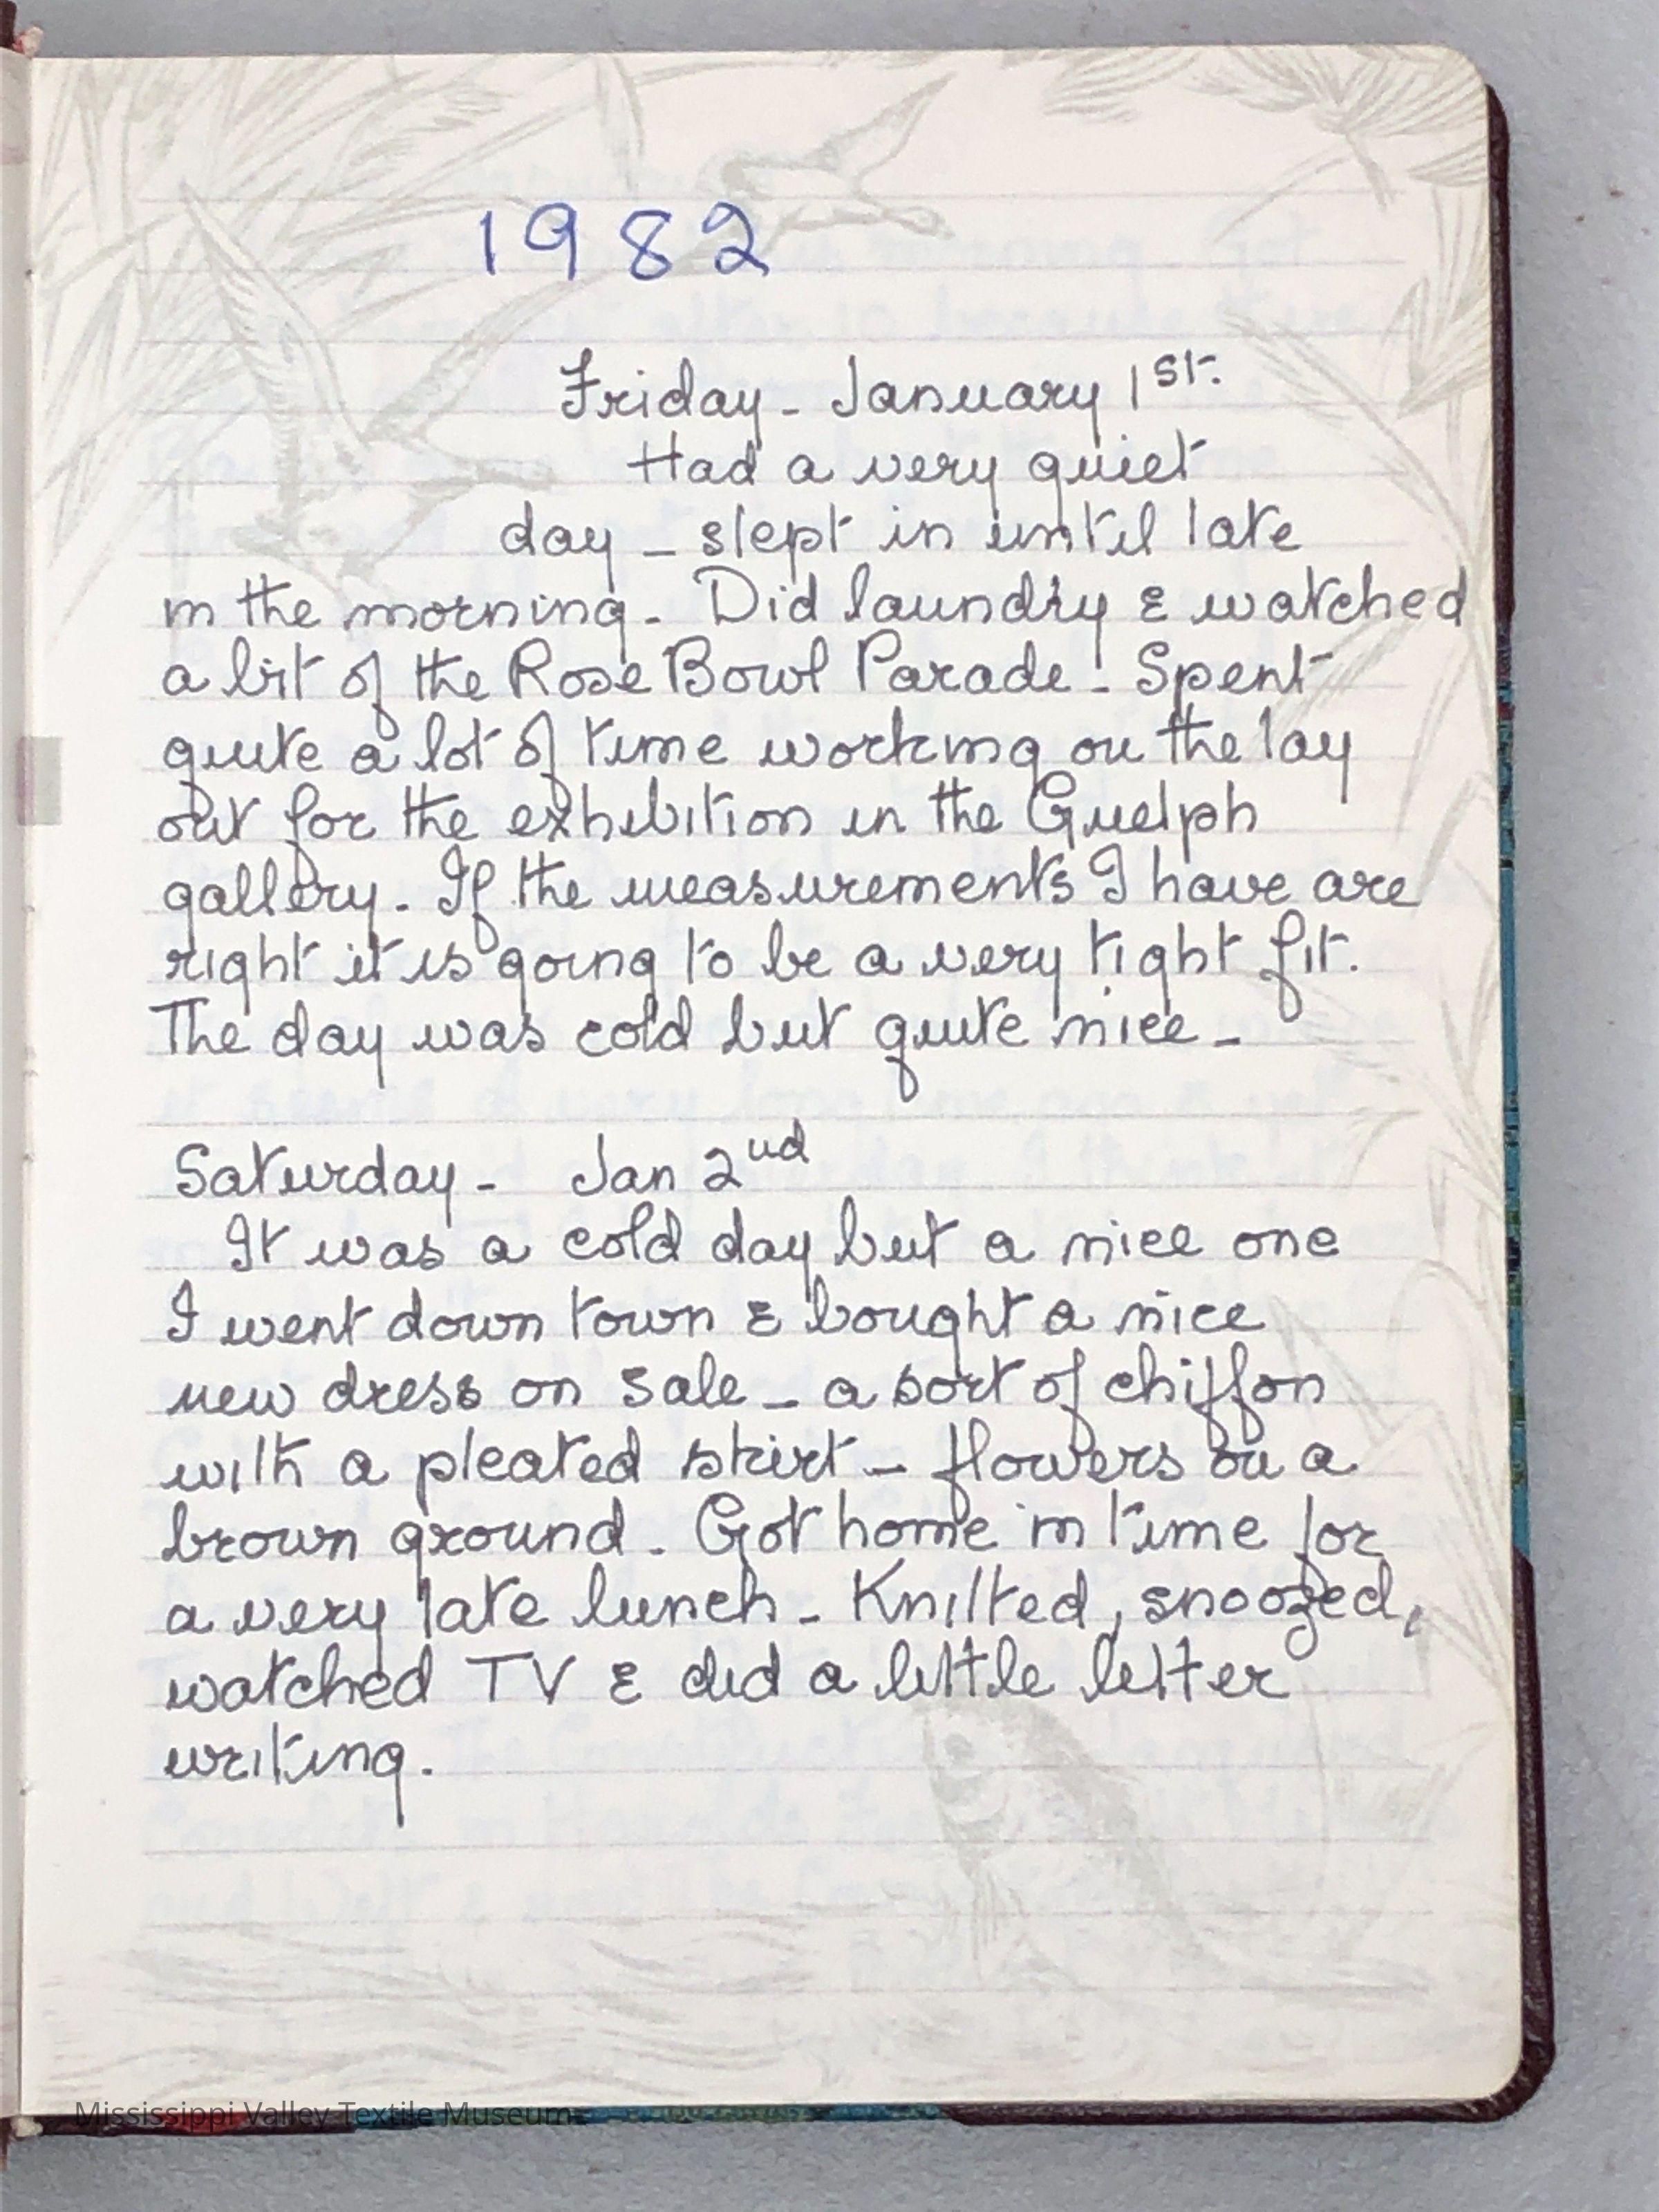 1982
Friday - January 1st.
Had a very quiet
day - slept in until late
in the morning. Did laundry & watched
a bit of the Rose Bowl Parade - Spent
quite a lot of time working on the lay
out for the exhibition in the Guelph
gallery. If the measurements I have are
right it is going to be a very tight fit.
The day was cold but quite nice -
Saturday - Jan 2nd
It was a cold day but a nice one
I went down town & bought a nice
new dress on sale - a sort of chiffon
with a pleated skirt - flowers on a
brown ground. Got home in time for
a very late lunch - Knitted, snoozed,
watched TV & did a little letter
writing.
Mississippi Valley Textile Museum